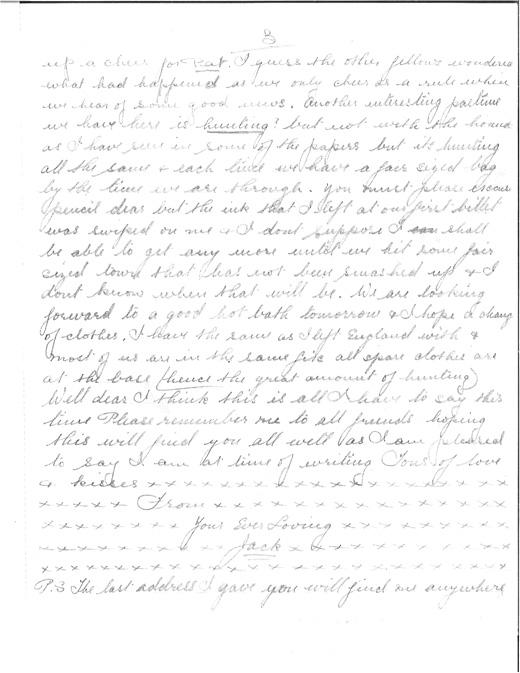 3
up a cheer for Kat. I guess the other fellows wondered
what had happened as we only cheer as a rule when
we hear of some good news. Another interesting pastime
we have here is hunting! but not with the hounds
as I have seen in some of the papers but its hunting
all the same & each time we have a fair sized bag
by the time we are through. You must please excuse
pencil dear but the ink that I left at our first billet
was swiped on me & I dont suppose I can shall
be able to get any more until we hit some fair
sized town that has not been smashed up & I
dont know when that will be. We are looking
forward to a good hot bath tomorrow & I hope a change
of clothes. I have the same as I left England with &
most of us are in the same fix all spare clothes are
at the base (hence the great amount of hunting)
Well dear I think this is all I have to say this
time Please remember me to all friends hoping
this will find you all well as I am pleased
to say I am at time of writing Tons of love
& kisses x x x x x x x x x x x x x x x
x x x x x From x x x x x x x x x x x
x x x x x x x Your Ever Loving x x x x x x x
x x x x x x x x x Jack x x x x x x x x x
x x x x x x x x x x x x x x x x x x x x x
P.S The last address I gave you will find me anywhere